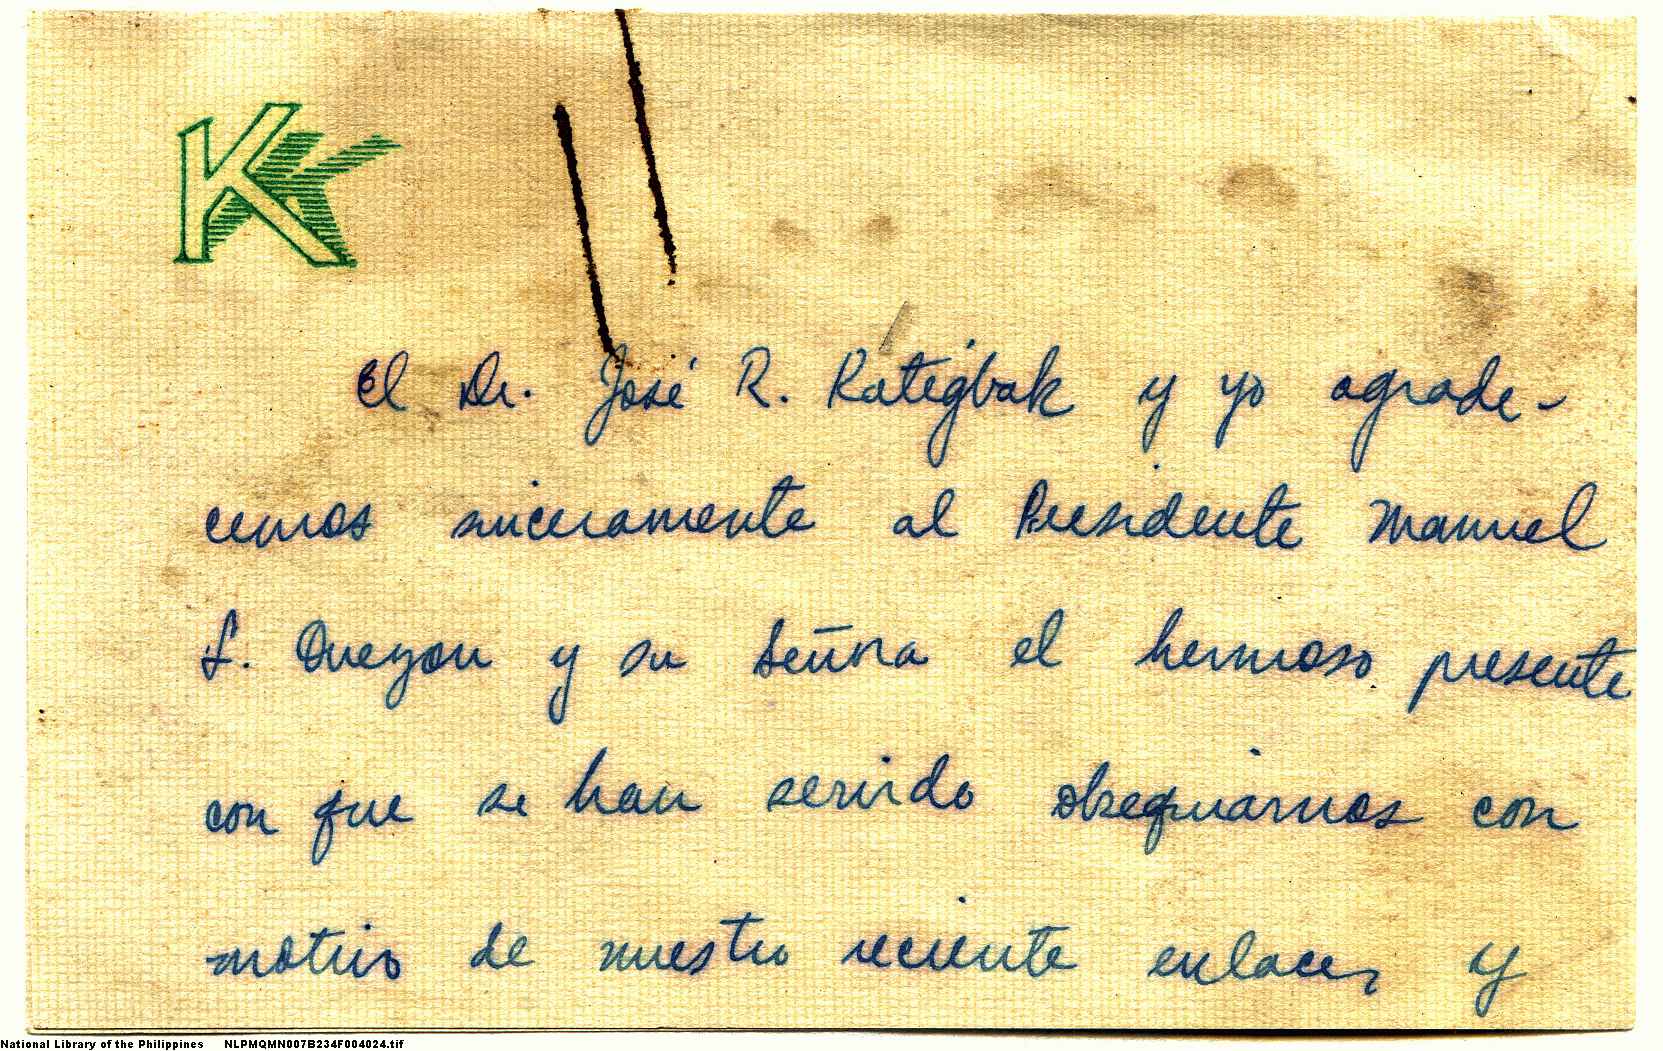 K
El Dr. José R. Katigbak y yo agrade-
cemos sinceramente al Presidente Manuel
L. Quezon y su Señora el hermoso presente
con que se han servido obsequiarnos con
motivo de nuestro reciente enlace, y
National Library of the Philippines NLPMQMN007B234F004024.tif